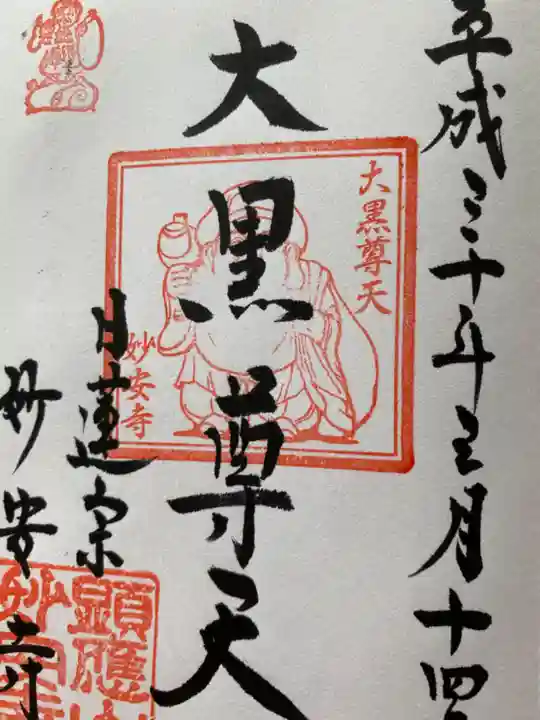 平成三十年三月十四
大黒尊天
大黒尊天
妙安寺
日蓮宗
妙安寺
顕應山
妙安寺